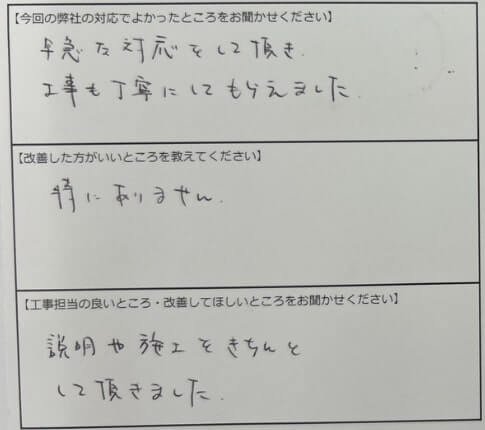 【今回の弊社の対応でよかったところをお聞かせください】
早急な対応をして頂き、
工事も丁寧にしてもらえました。
【改善した方がいいところを教えてください】
特にありません。
【工事担当の良いところ・改善してほしいところをお聞かせください】
説明や施工をきちんと
して頂きました。